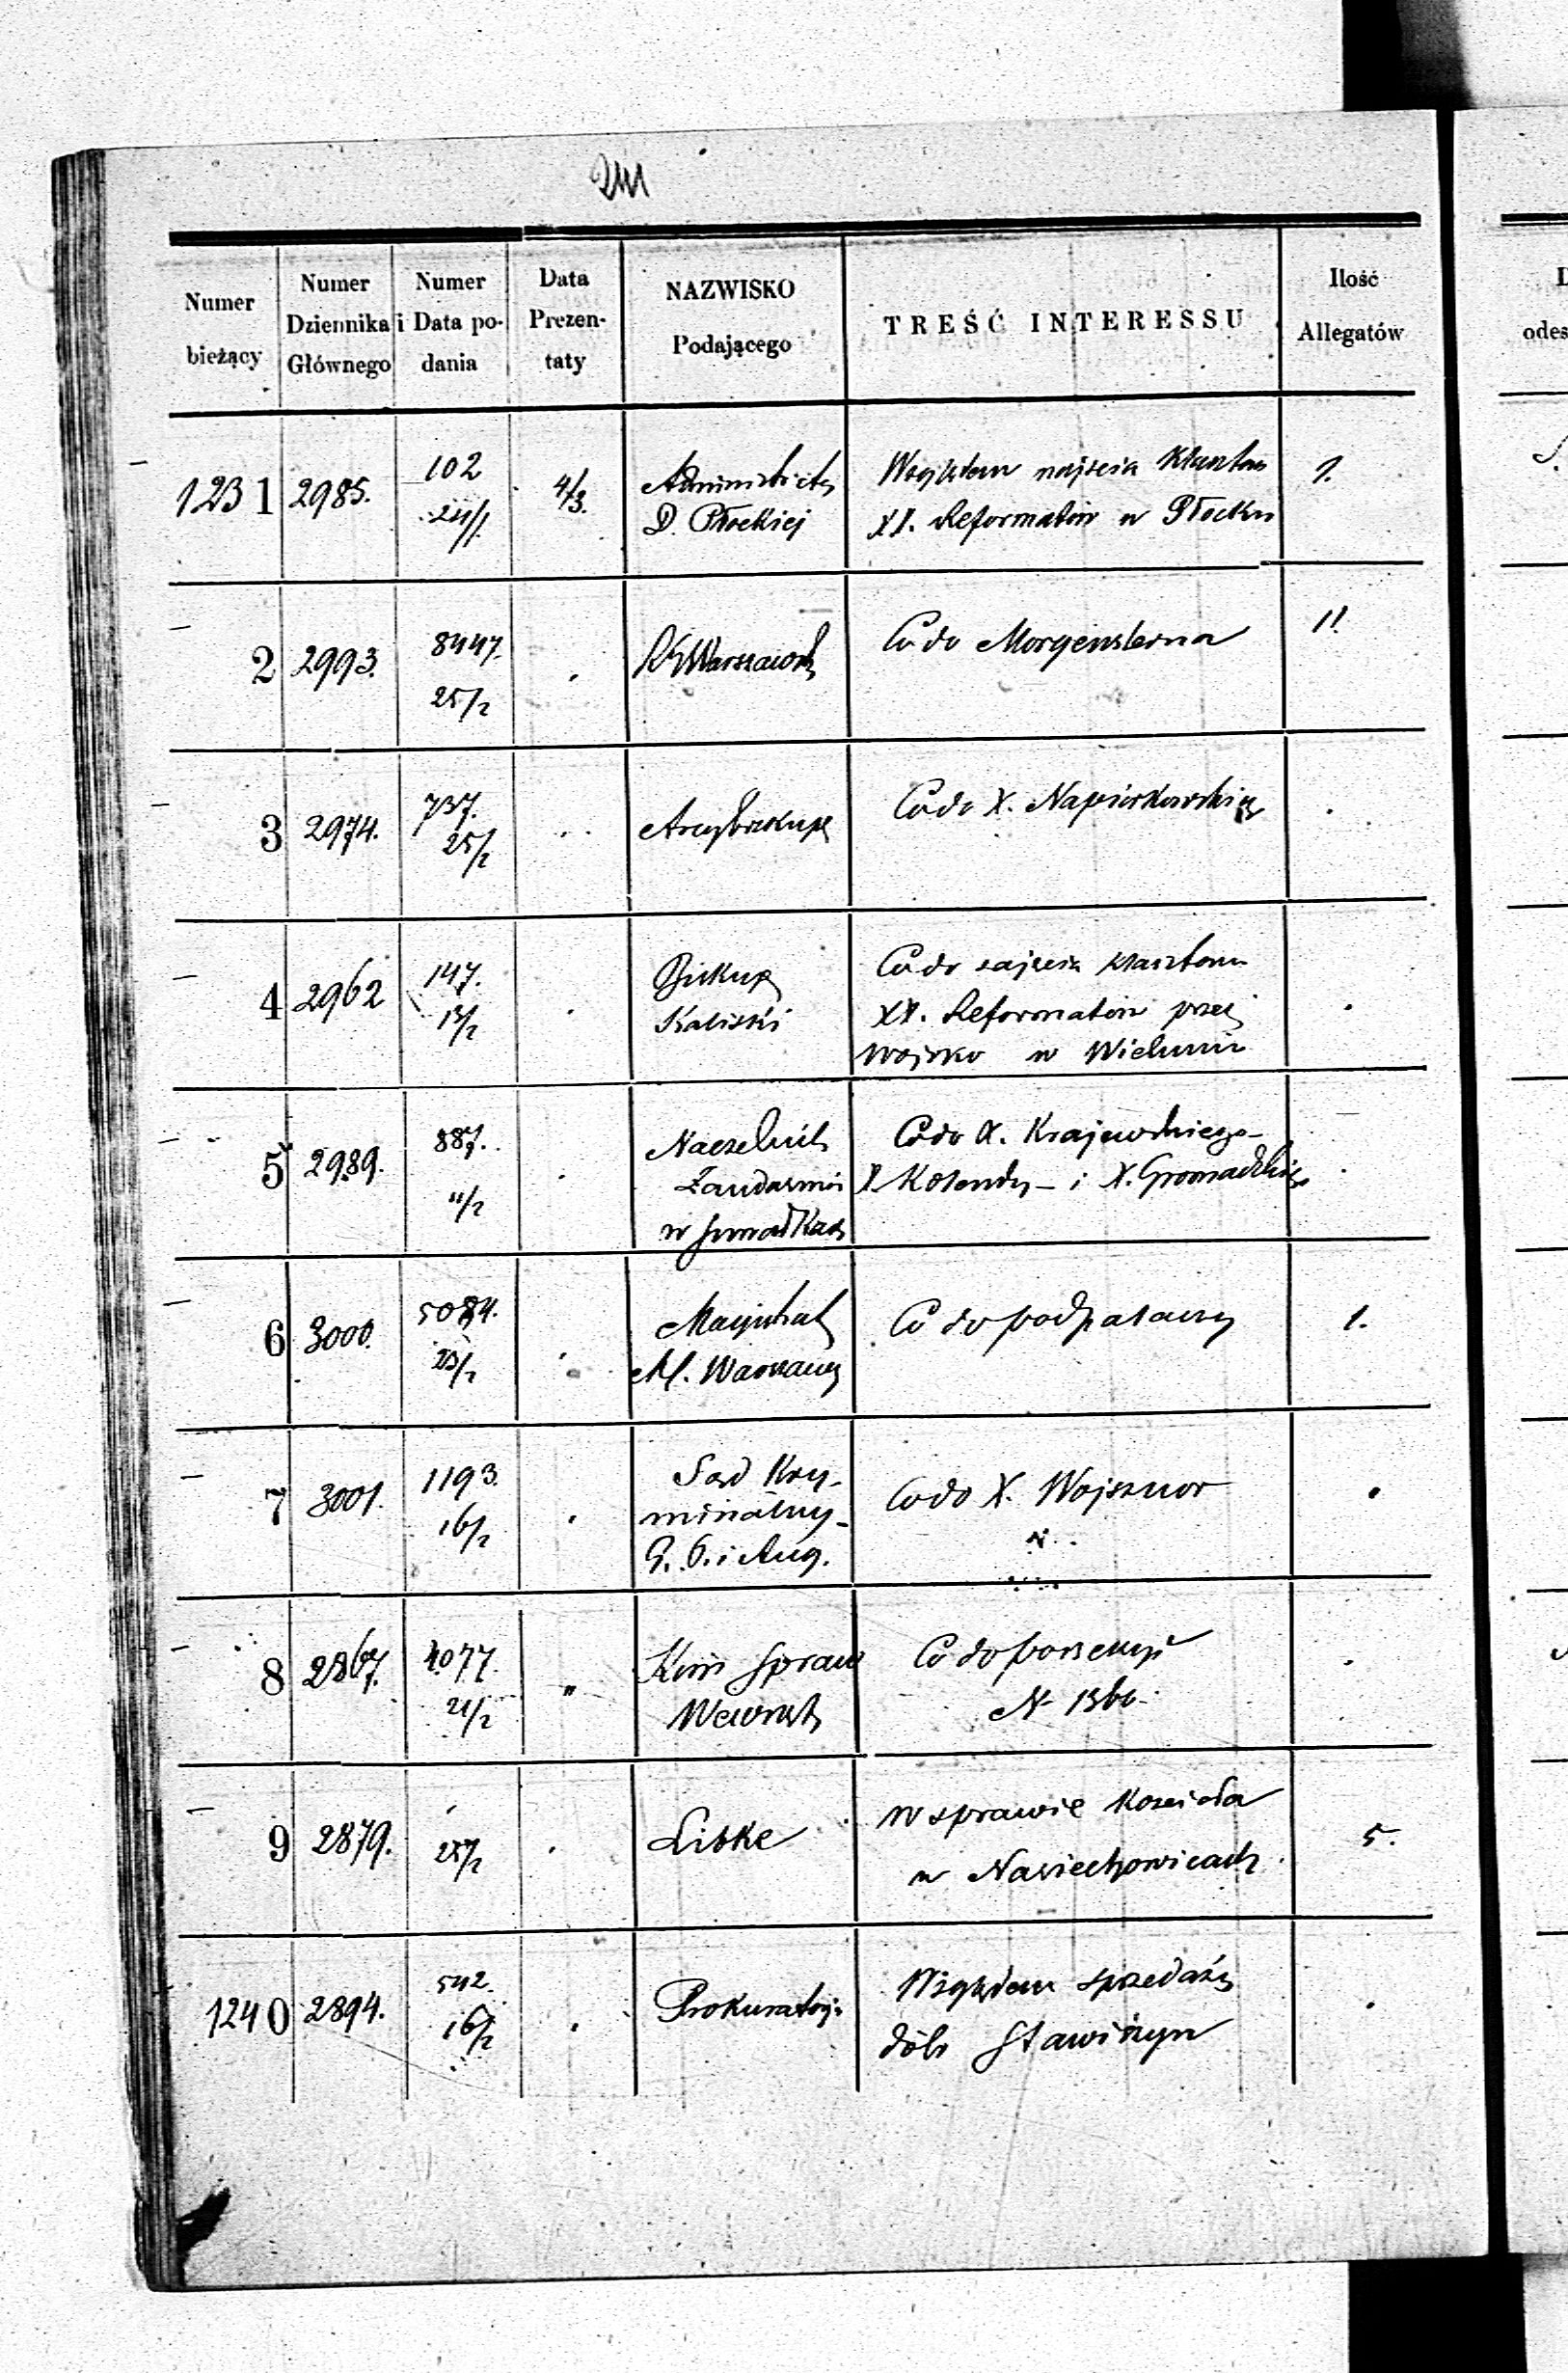 Numer bieżący
Numer Dziennika Głównego
Numer i Data podania
Data Prezentaty
NAZWISKO Podającego
TREŚĆ INTERESSU
Ilość Allegatów
1231 2985. 102 4/3. Administrator Względem najścia Klasztoru 1.
D. Płockiej XX. Reformatów w Płocku
2 2993. 8447. Co do Morgensterna 11.
25/2
3 2974. 737. Arcybiskup Co do X. Napiorkowskieg
25/2
4 2962 147. Biskup Co do zajścia klasztoru
13/2 Kaliski XX. Reformatów przez
Wojsko w Wieluniu
5 2989. 887. Naczelnik Co do X. Krajewskiego
11/2 Żandarmów X. Kolendy i X. Gromadzkiego
w Suwałkach
6 3000. 5084. Magistrat Co do 1.
23/2 M. Warszawy
7 3001. 1193. Sąd Kry- Co do X. Wojsznor
16/2 minalny
G. i Aug.
8 2867. 4077. Kom Spraw Co do
21/2 Wewnęt N 1366.
9 2879. Libke W sprawie kościoła 5.
25/2 w Nasiechowicach
1240 2894. 542. Prokuratorja Względem sprzedaży
16/2 dóbr Stawiszyn